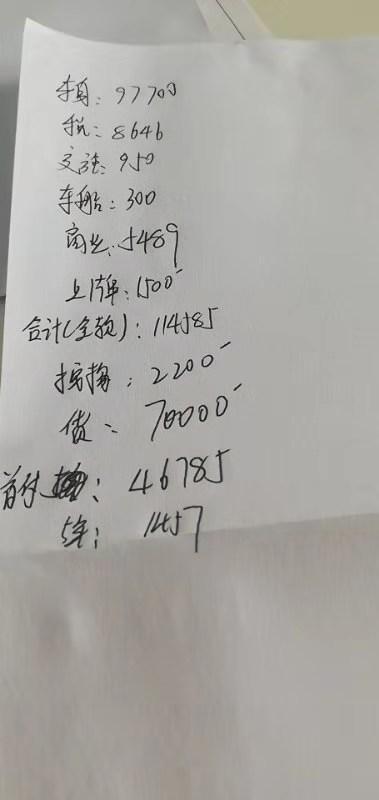 车身: 97700
税: 8646
交强: 950
车船: 300
商业: 5489
上牌: 1500-
合计(全款): 114585
按揭: 2200-
贷: 70000-
首付: 46785
5年: 1457